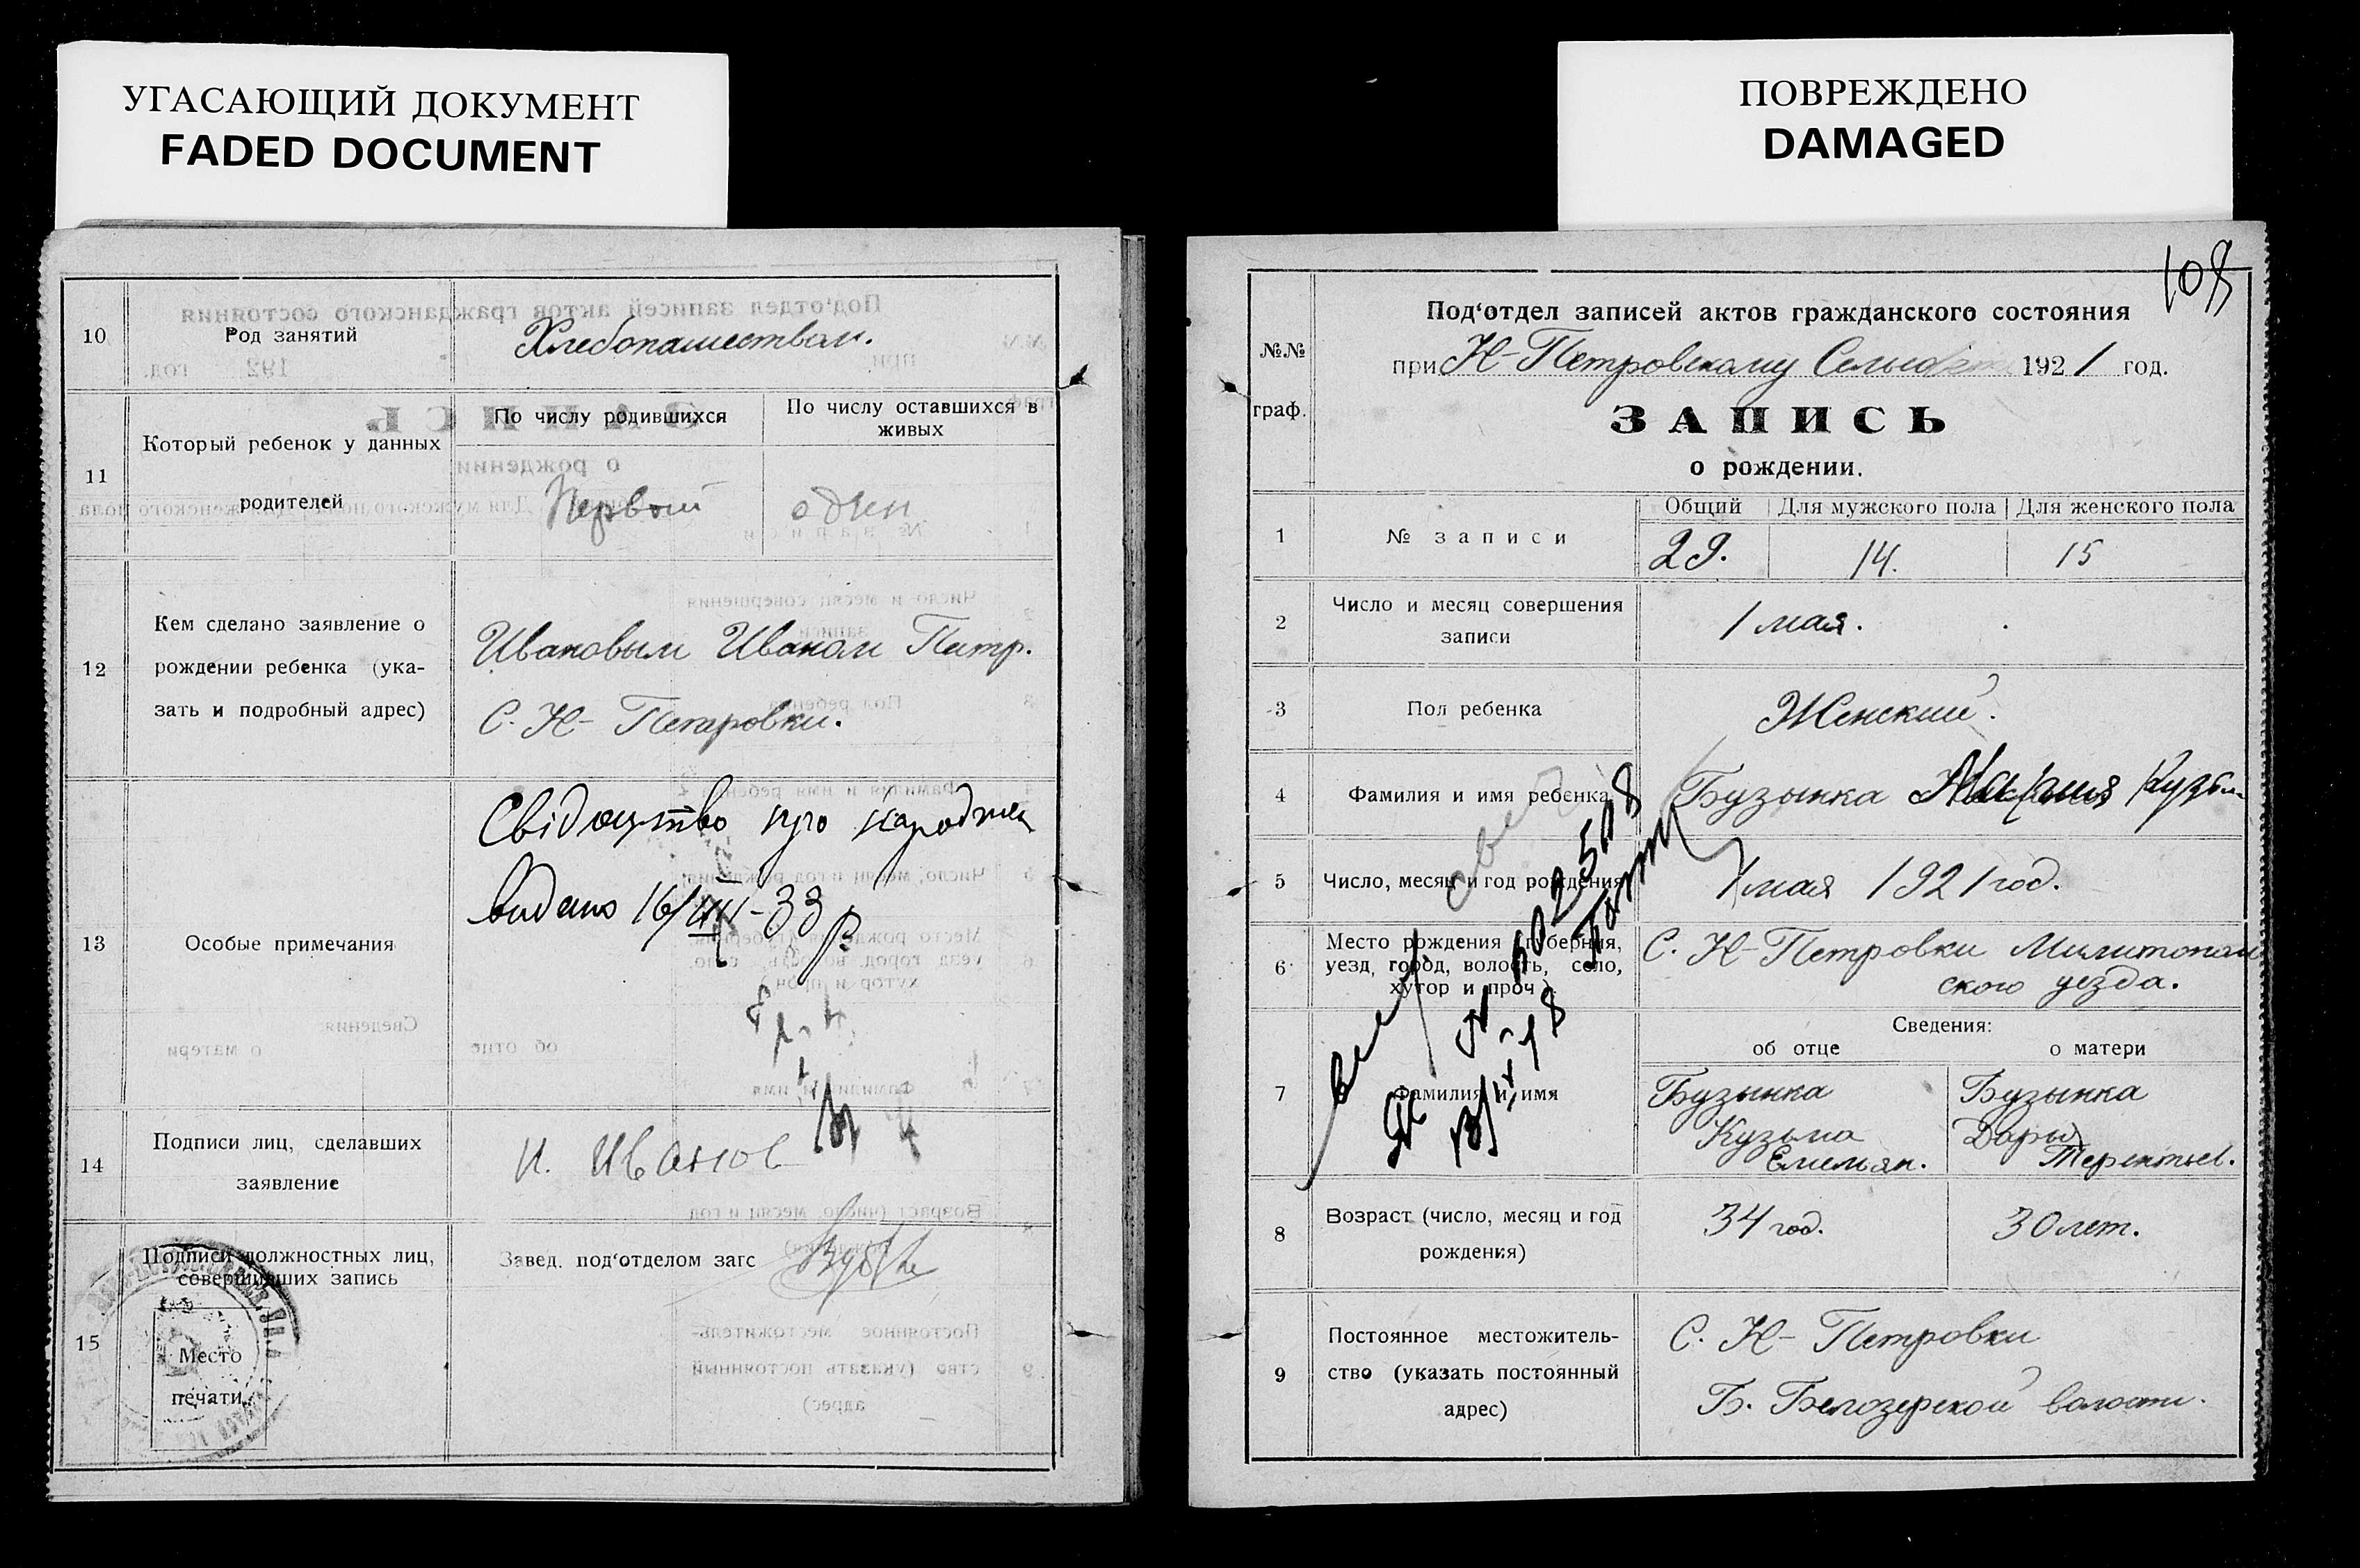 УГАСАЮЩИЙ ДОКУМЕНТ
FADED DOCUMENT
10
Род занятий
Хлебопашеством.
11
Который ребенок у данных
родителей
По числу родившихся
По числу оставшихся в
живых
Первый
один
12
Кем сделано заявление о
рождении ребенка (ука-
зать и подробный адрес)
Ивановым Иваном Петр.
С. Н- Петровки.
13
Особые примечания
Свідоцтво про народжен
видано 16/VIII-33 р
14
Подписи лиц, сделавших
заявление
И. Иванов
15
Подписи должностных лиц,
совершивших запись
Завед. под‘отделом загс
Место
печати
ПОВРЕЖДЕНО
DAMAGED
108
№№
граф.
Под‘отдел записей актов гражданского состояния
при Н-Петровскому 1921 год.
ЗАПИСЬ
о рождении.
1
№ записи
Общий
Для мужского пола
Для женского пола
29.
14.
15
2
Число и месяц совершения
записи
1 мая.
3
Пол ребенка
Женский.
4
Фамилия и имя ребенка
Бузынка Мария Кузьм
5
Число, месяц и год рождения
1 мая 1921 год.
6
Место рождения (губерния,
уезд, город, волость, село,
хутор и проч.)
С. Н-Петровки Милитополь
ского уезда.
7
Фамилия и имя
Сведения:
об отце
о матери
Бузынка
Кузьма
Емельян.
Бузынка
Дарья
Терентьев.
8
Возраст (число, месяц и год
рождения)
34 год.
30 лет.
9
Постоянное местожитель-
ство (указать постоянный
адрес)
С. Н- Петровки
Б. Белозерской волости.